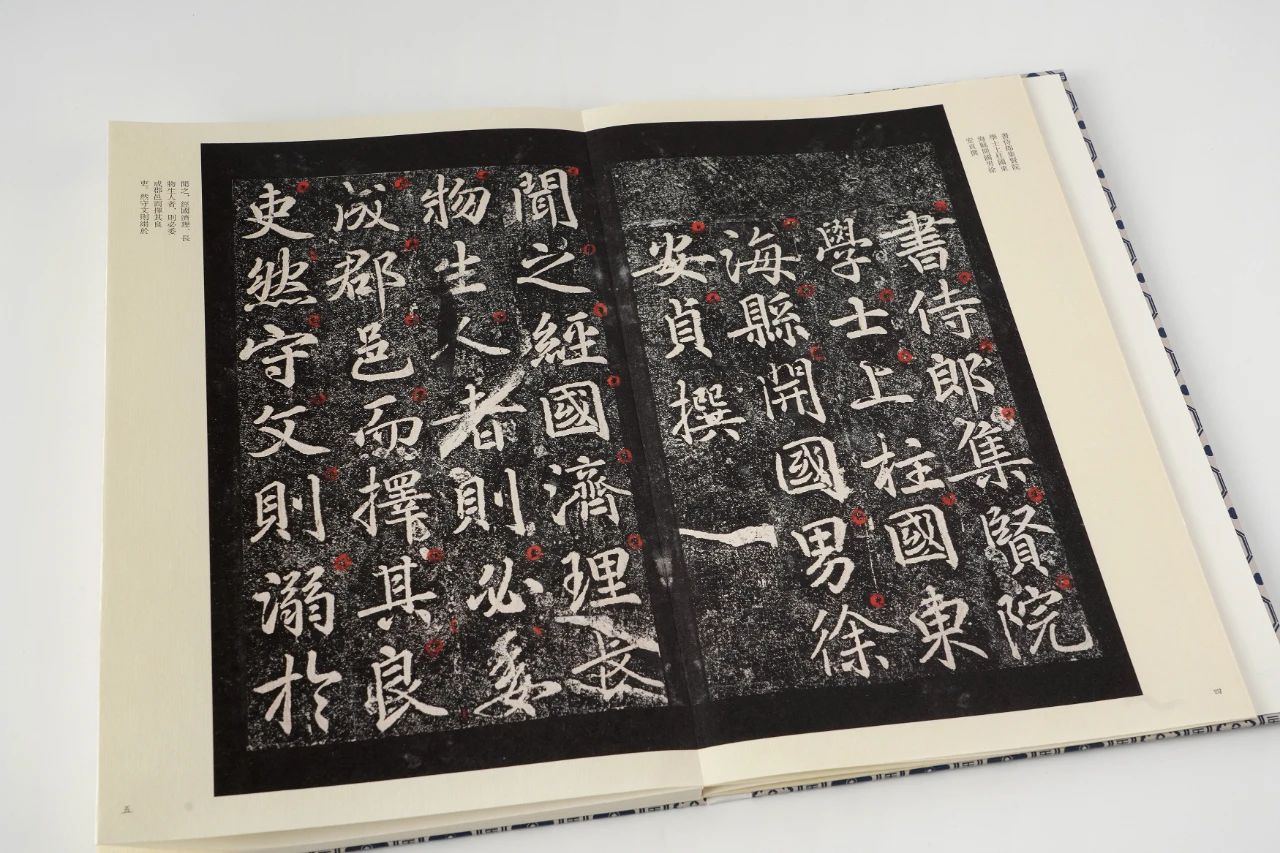 書侍郎集賢院
學士上柱國東
海縣開國男徐
安貞撰
書侍郎集賢院
學士上柱國東
海縣開國男徐
安貞撰
四
聞之經國濟理長
物生人者則必委
成郡邑而擇其良
吏然守文則溺於
聞之、經國濟理、長
物生人者、則必委
成郡邑而擇其良
吏。然守文則溺於
五